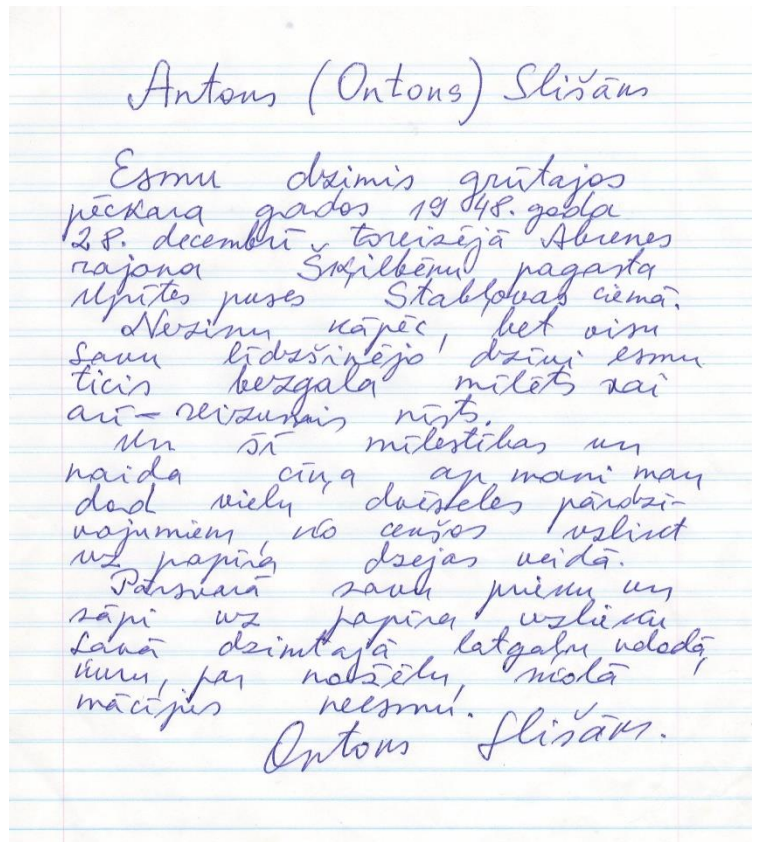 Antons (Ontons) Slišāns
Esmu dzimis grūtajos
pēckara gados 1948. gada
28. decembrī toreizējā Abrenes
rajona Šķilbēnu pagasta
Upītes puses Stabļovas ciemā.
Nezinu kāpēc, bet visu
savu līdzšinējo dzīvi esmu
ticis bezgala mīlēts vai
arī – reizumais nīsts.
Un šī mīlestības un
naida cīņa ap mani man
dod vielu dvēseles pārdzī-
vojumiem, ko cenšos uzlikt
uz papīra dzejas veidā.
Pārsvarā savu prieku un
sāpi uz papīra uzlieku
savā dzimtajā latgaļu valodā,
kuru, par nožēlu, skolā
mācījies neesmu.
Ontons Slišāns.